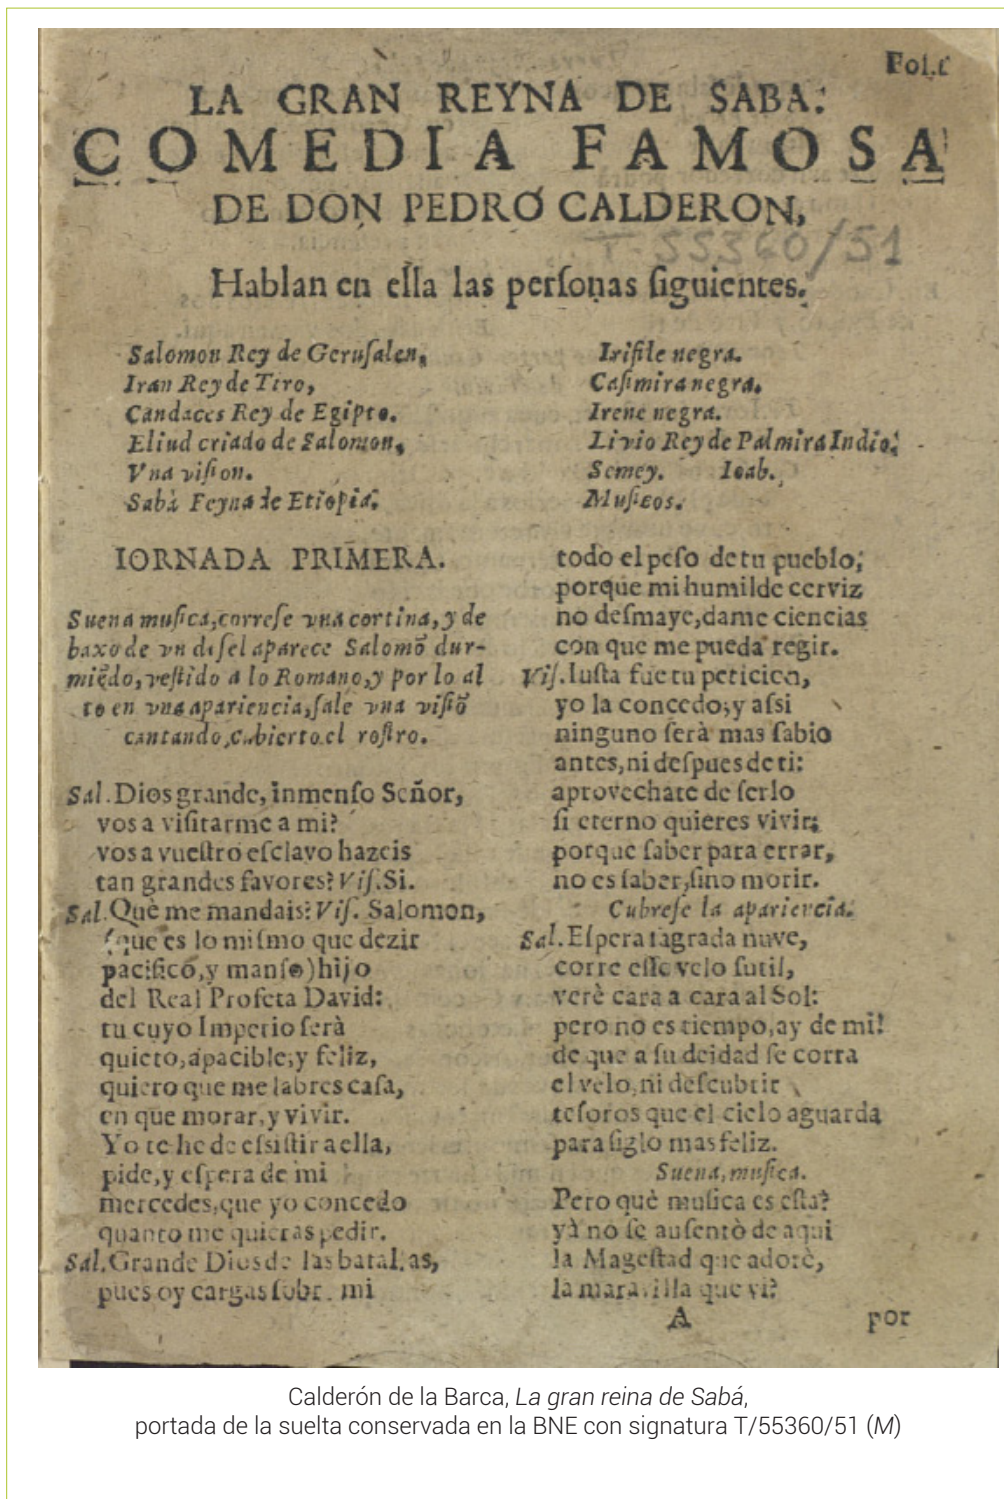 Fol.1
LA GRAN REYNA DE SABA.
COMEDIA FAMOSA
DE DON PEDRO CALDERON,
T-55360/51
Hablan en ella las perſonas ſiguientes.
Salomon Rey de Geruſalen,
Iran Rey de Tiro,
Candaces Rey de Egipto.
Eliud criado de Salomon,
Vna viſion.
Sabà Feyna de Etiopia.
Iriſile negra.
Caſimira negra.
Irene negra.
Livio Rey de Palmira Indio.
Semey. Ioab.
Muſicos.
IORNADA PRIMERA.
Suena muſica, correſe vna cortina, y de
baxo de vn doſel aparece Salomõ dur-
miẽdo, veſtido a lo Romano, y por lo al
to en vna apariencia, ſale vna viſiõ
cantando, cubierto el roſtro.
Sal. Dios grande, inmenſo Señor,
vos a viſitarme a mi?
vos a vueſtro eſclavo hazeis
tan grandes favores? Viſ. Si.
Sal. Què me mandais? Viſ. Salomon,
(que es lo miſmo que dezir
pacifico, y manſo) hijo
del Real Profeta David:
tu cuyo Imperio ſerà
quieto, apacible, y feliz,
quiero que me labres caſa,
en que morar, y vivir.
Yo te he de eſsiſtir a ella,
pide, y eſpera de mi
mercedes, que yo concedo
quanto me quieras pedir.
Sal. Grande Dios de las batallas,
pues oy cargas ſobre mi
todo el peſo de tu pueblo;
porque mi humilde cerviz
no deſmaye, dame ciencias
con que me pueda regir.
Viſ. Iuſta fue tu peticion,
yo la concedo; y aſsi
ninguno ſerà mas ſabio
antes, ni deſpues de ti:
aprovechate de ſerlo
ſi eterno quieres vivir;
porque ſaber para errar,
no es ſaber, ſino morir.
Cubreſe la apariencia.
Sal. Eſpera ſagrada nuve,
corre eſſe velo ſutil,
verè cara a cara al Sol:
pero no es tiempo, ay de mi!
de que a ſu deidad ſe corra
el velo, ni deſcubrir
teſoros que el cielo aguarda
para ſiglo mas feliz.
Suena, muſica.
Pero què muſica es eſta?
yà no ſe auſentò de aqui
la Mageſtad que adorè,
la maravilla que vi?
A por
Calderón de la Barca, La gran reina de Sabá,
portada de la suelta conservada en la BNE con signatura T/55360/51 (M)